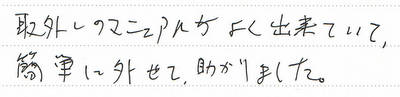 取外しのマニュアルがよく出来ていて、
簡単に外せて、助かりました。